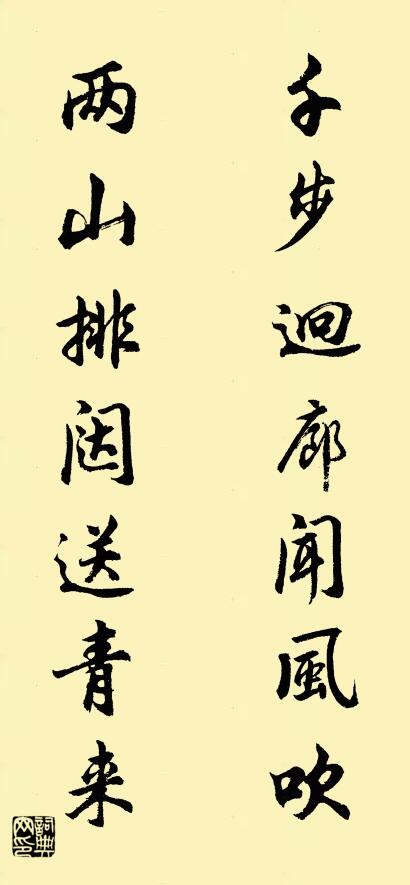 千步迴廊闻風吹
两山排闼送青来
詞典
网印